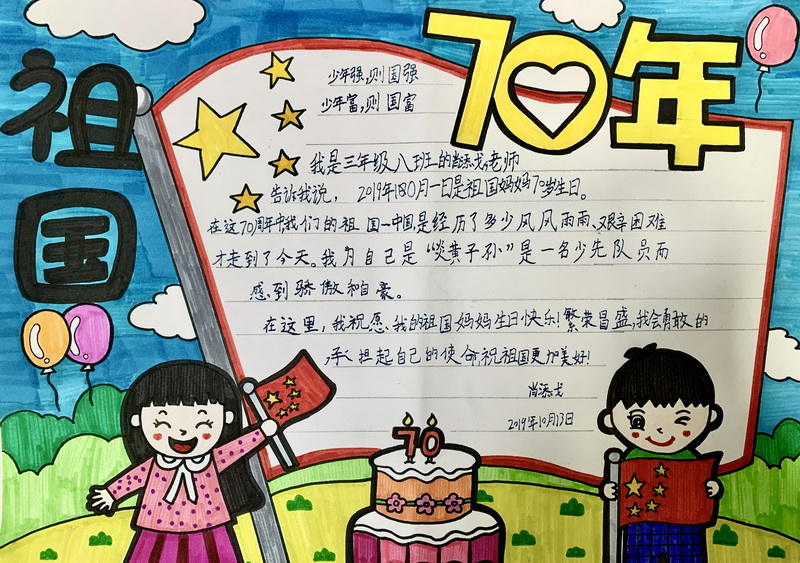 祖国
70年
少年强,则国强
少年富,则国富
我是三年级八班的肖添戈,老师
告诉我说, 2019年10月一日是祖国妈妈70岁生日。
在这70周年中,我们的祖国—中国,是经历了多少风风雨雨、艰辛困难
才走到了今天。我为自己是“炎黄子孙”是一名少先队员而
感到骄傲和自豪。
在这里,我祝愿我的祖国妈妈生日快乐!繁荣昌盛,我会勇敢的
承担起自己的使命,祝祖国更加美好!
肖添戈
2019年10月13日
70